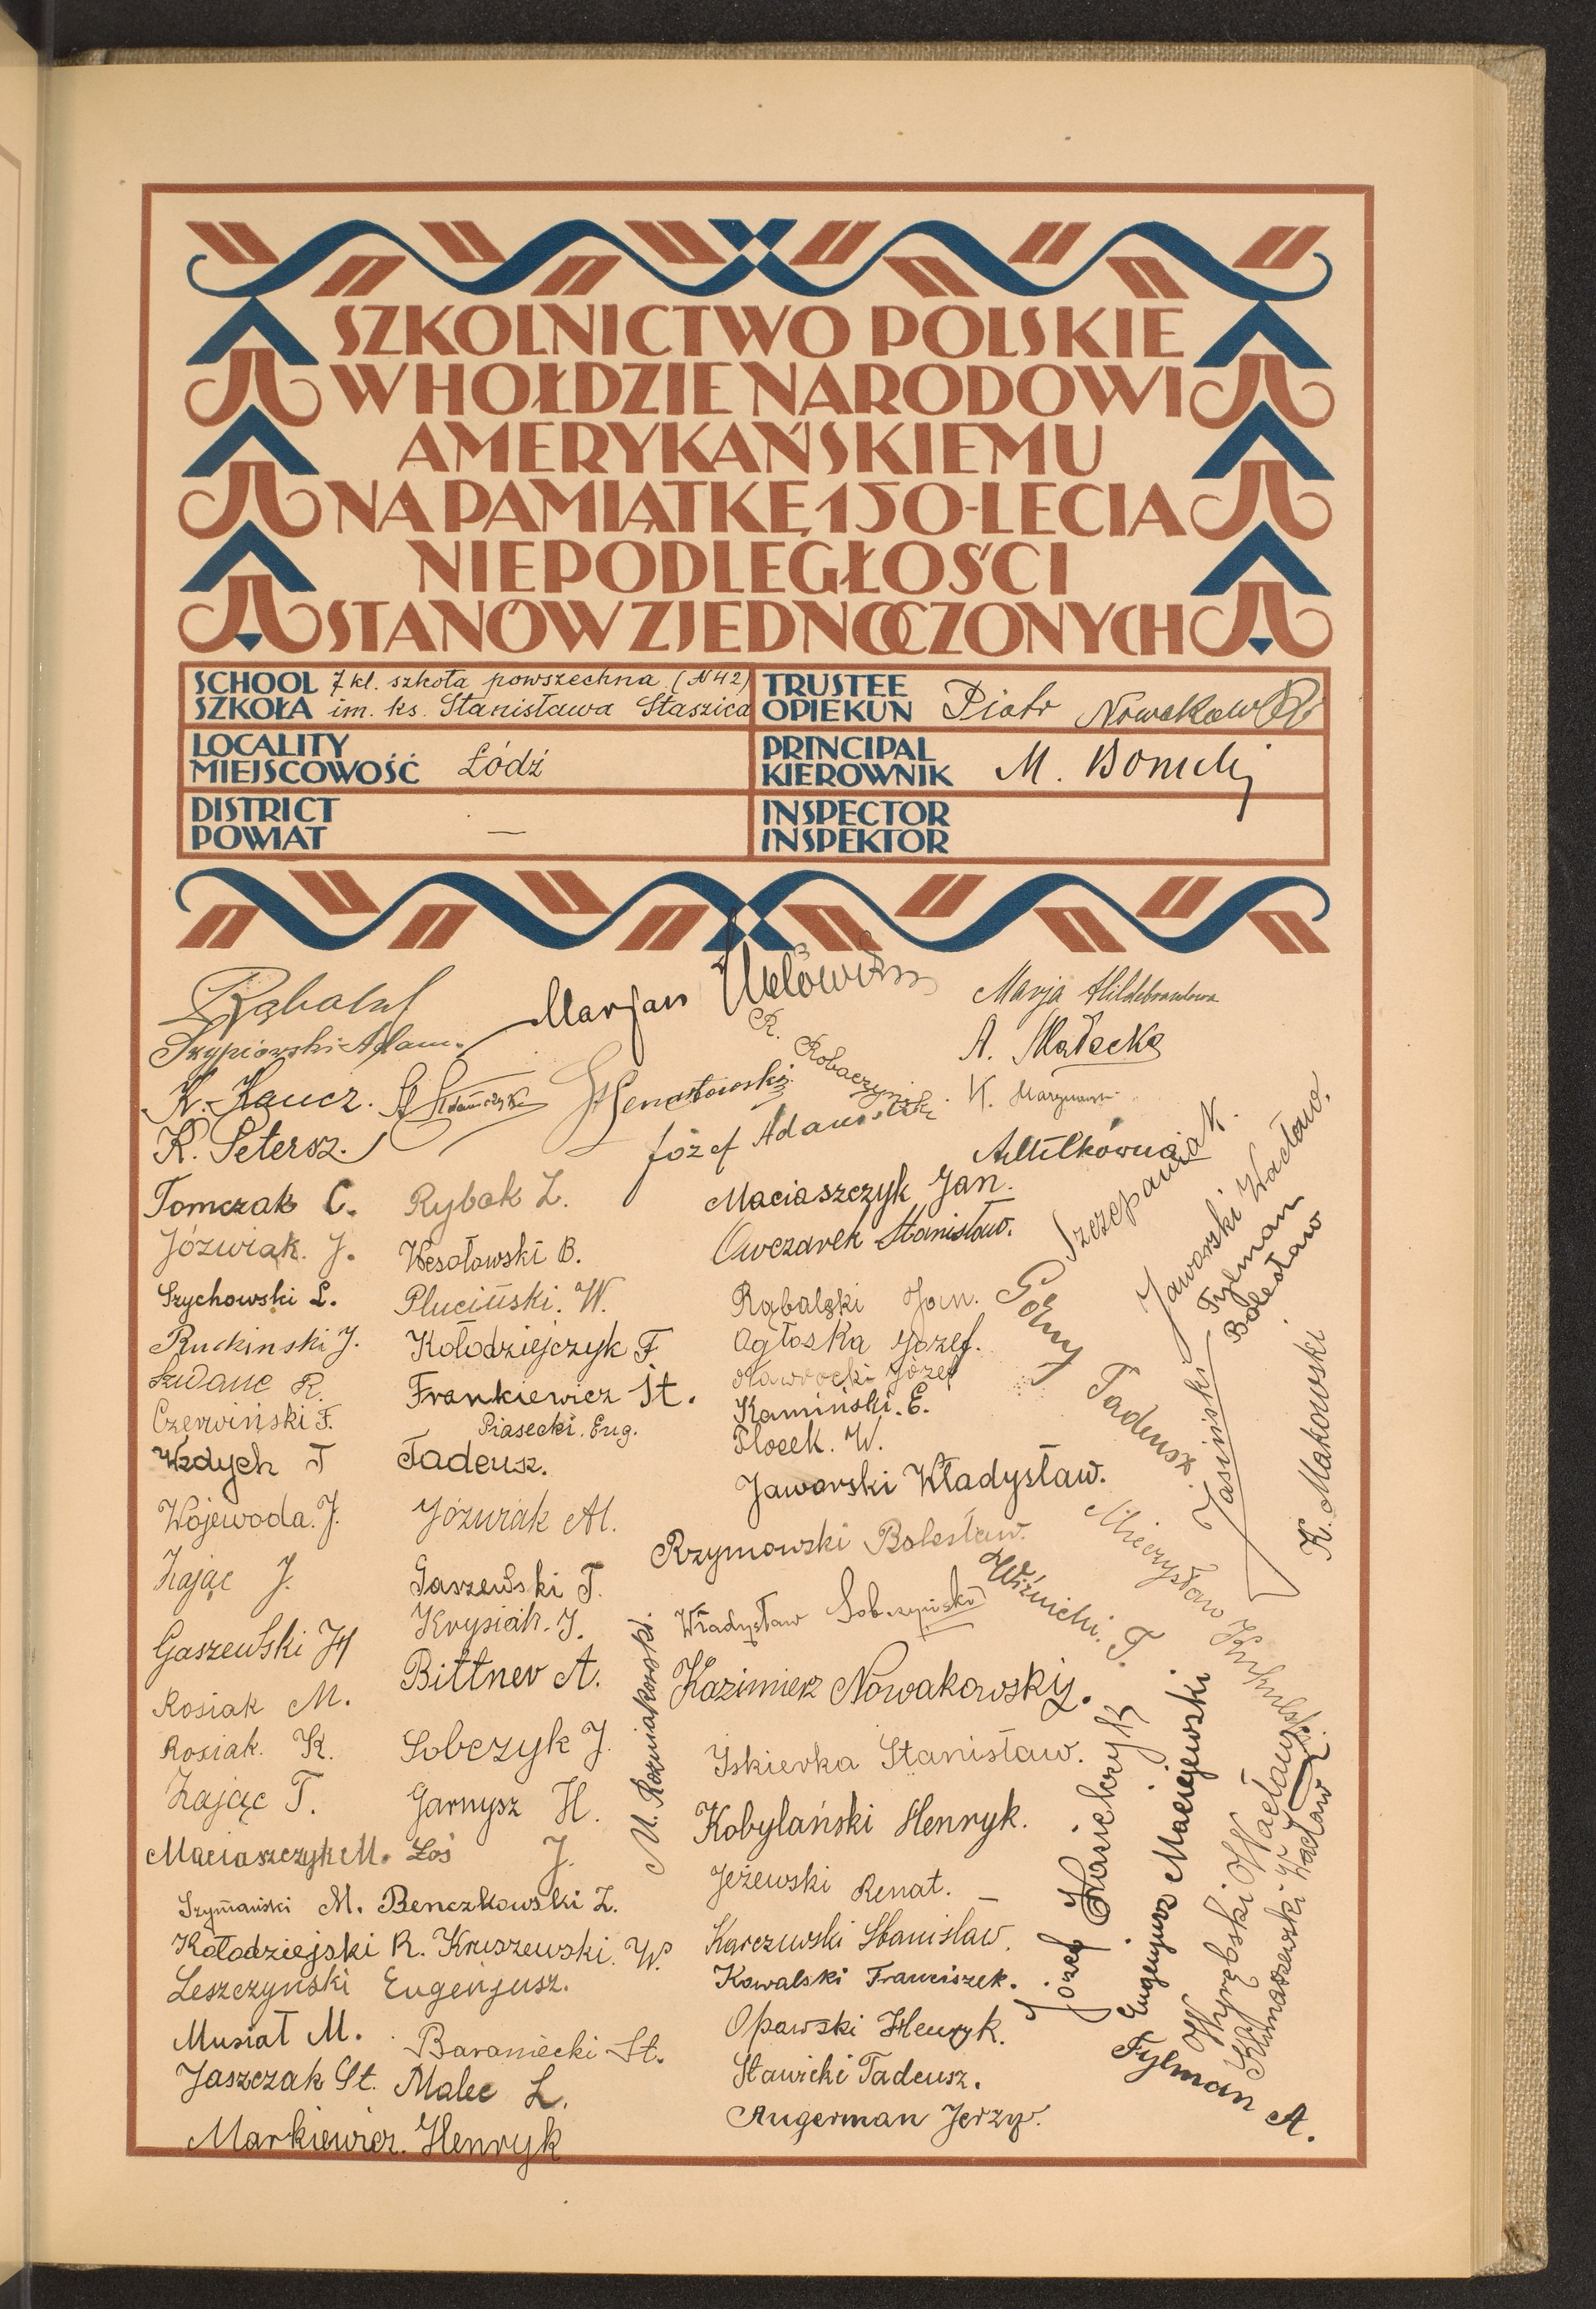 SZKOLNICTWO POLSKIE
W HOŁDZIE NARODOWI
AMERYKAŃSKIEMU
NA PAMIĄTKĘ 150-LECIA
NIEPODLEGŁOŚCI
STANÓW ZJEDNOCZONYCH
SCHOOL 7 kl. szkoła powszechna (N 42)
SZKOŁA im. ks. Stanisława Staszica
TRUSTEE
OPIEKUN Piotr Nowakowski
LOCALITY
MIEJSCOWOŚĆ Łódź
PRINCIPAL
KIEROWNIK M.
DISTRICT
POWIAT —
INSPECTOR
INSPEKTOR
Marjan
Marja Hildebrandowa
Adam
A. Małecka
R. Robaczyński
K. Kaucz.
K.
K. Petersz.
Józef Adamski
Tomczak C.
Rybak Z.
Maciaszczyk Jan.
Szczepaniak.
Jóźwiak. J.
Wesołowski B.
Owczarek Stanisław.
Jaworski Wacław.
Szychowski L.
Pluciński. W.
Rąbalski Jan.
Górny Tadeusz.
Fylman Bolesław
Ruckinski J.
Kołodziejczyk F
Ogłoska Józef.
R.
Frankiewicz St.
Nawrocki Józef
Jasiński
K. Makowski
Czerwiński F.
Piasecki. Eug.
Kamiński. E.
Wzdych T
Tadeusz.
Płocek. W.
Jaworski Władysław.
Wojewoda. J.
Jóźwiak M.
Rzymowski Bolesław.
Mieczysław
Zając J.
Gaszewski T.
Woźnicki. T.
Krysiak. J.
Władysław Sobczyński
Gaszewski H
Bittner A.
M. Rozniakowski.
Kazimierz Nowakowski.
Rosiak M.
Rosiak. K.
Sobczyk J.
Iskierka Stanisław.
Zając T.
Garnysz H.
Kobylański Henryk.
Józef
Eugenjusz Maciejewski
Wyrębski Wacław
Wacław
Maciaszczyk M.
Łoś J.
Jeżewski Renat. —
Szymański M.
Benczkowski Z.
Kołodziejski R.
Kruszewski. W.
Karczewski Stanisław.
Leszczyński Eugenjusz.
Kowalski Franciszek.
Musiał M.
Baraniecki St.
Opawski Henryk.
Jaszczak St.
Malec L.
Sławicki Tadeusz.
Fylman A.
Markiewicz. Henryk
Augerman Jerzy.